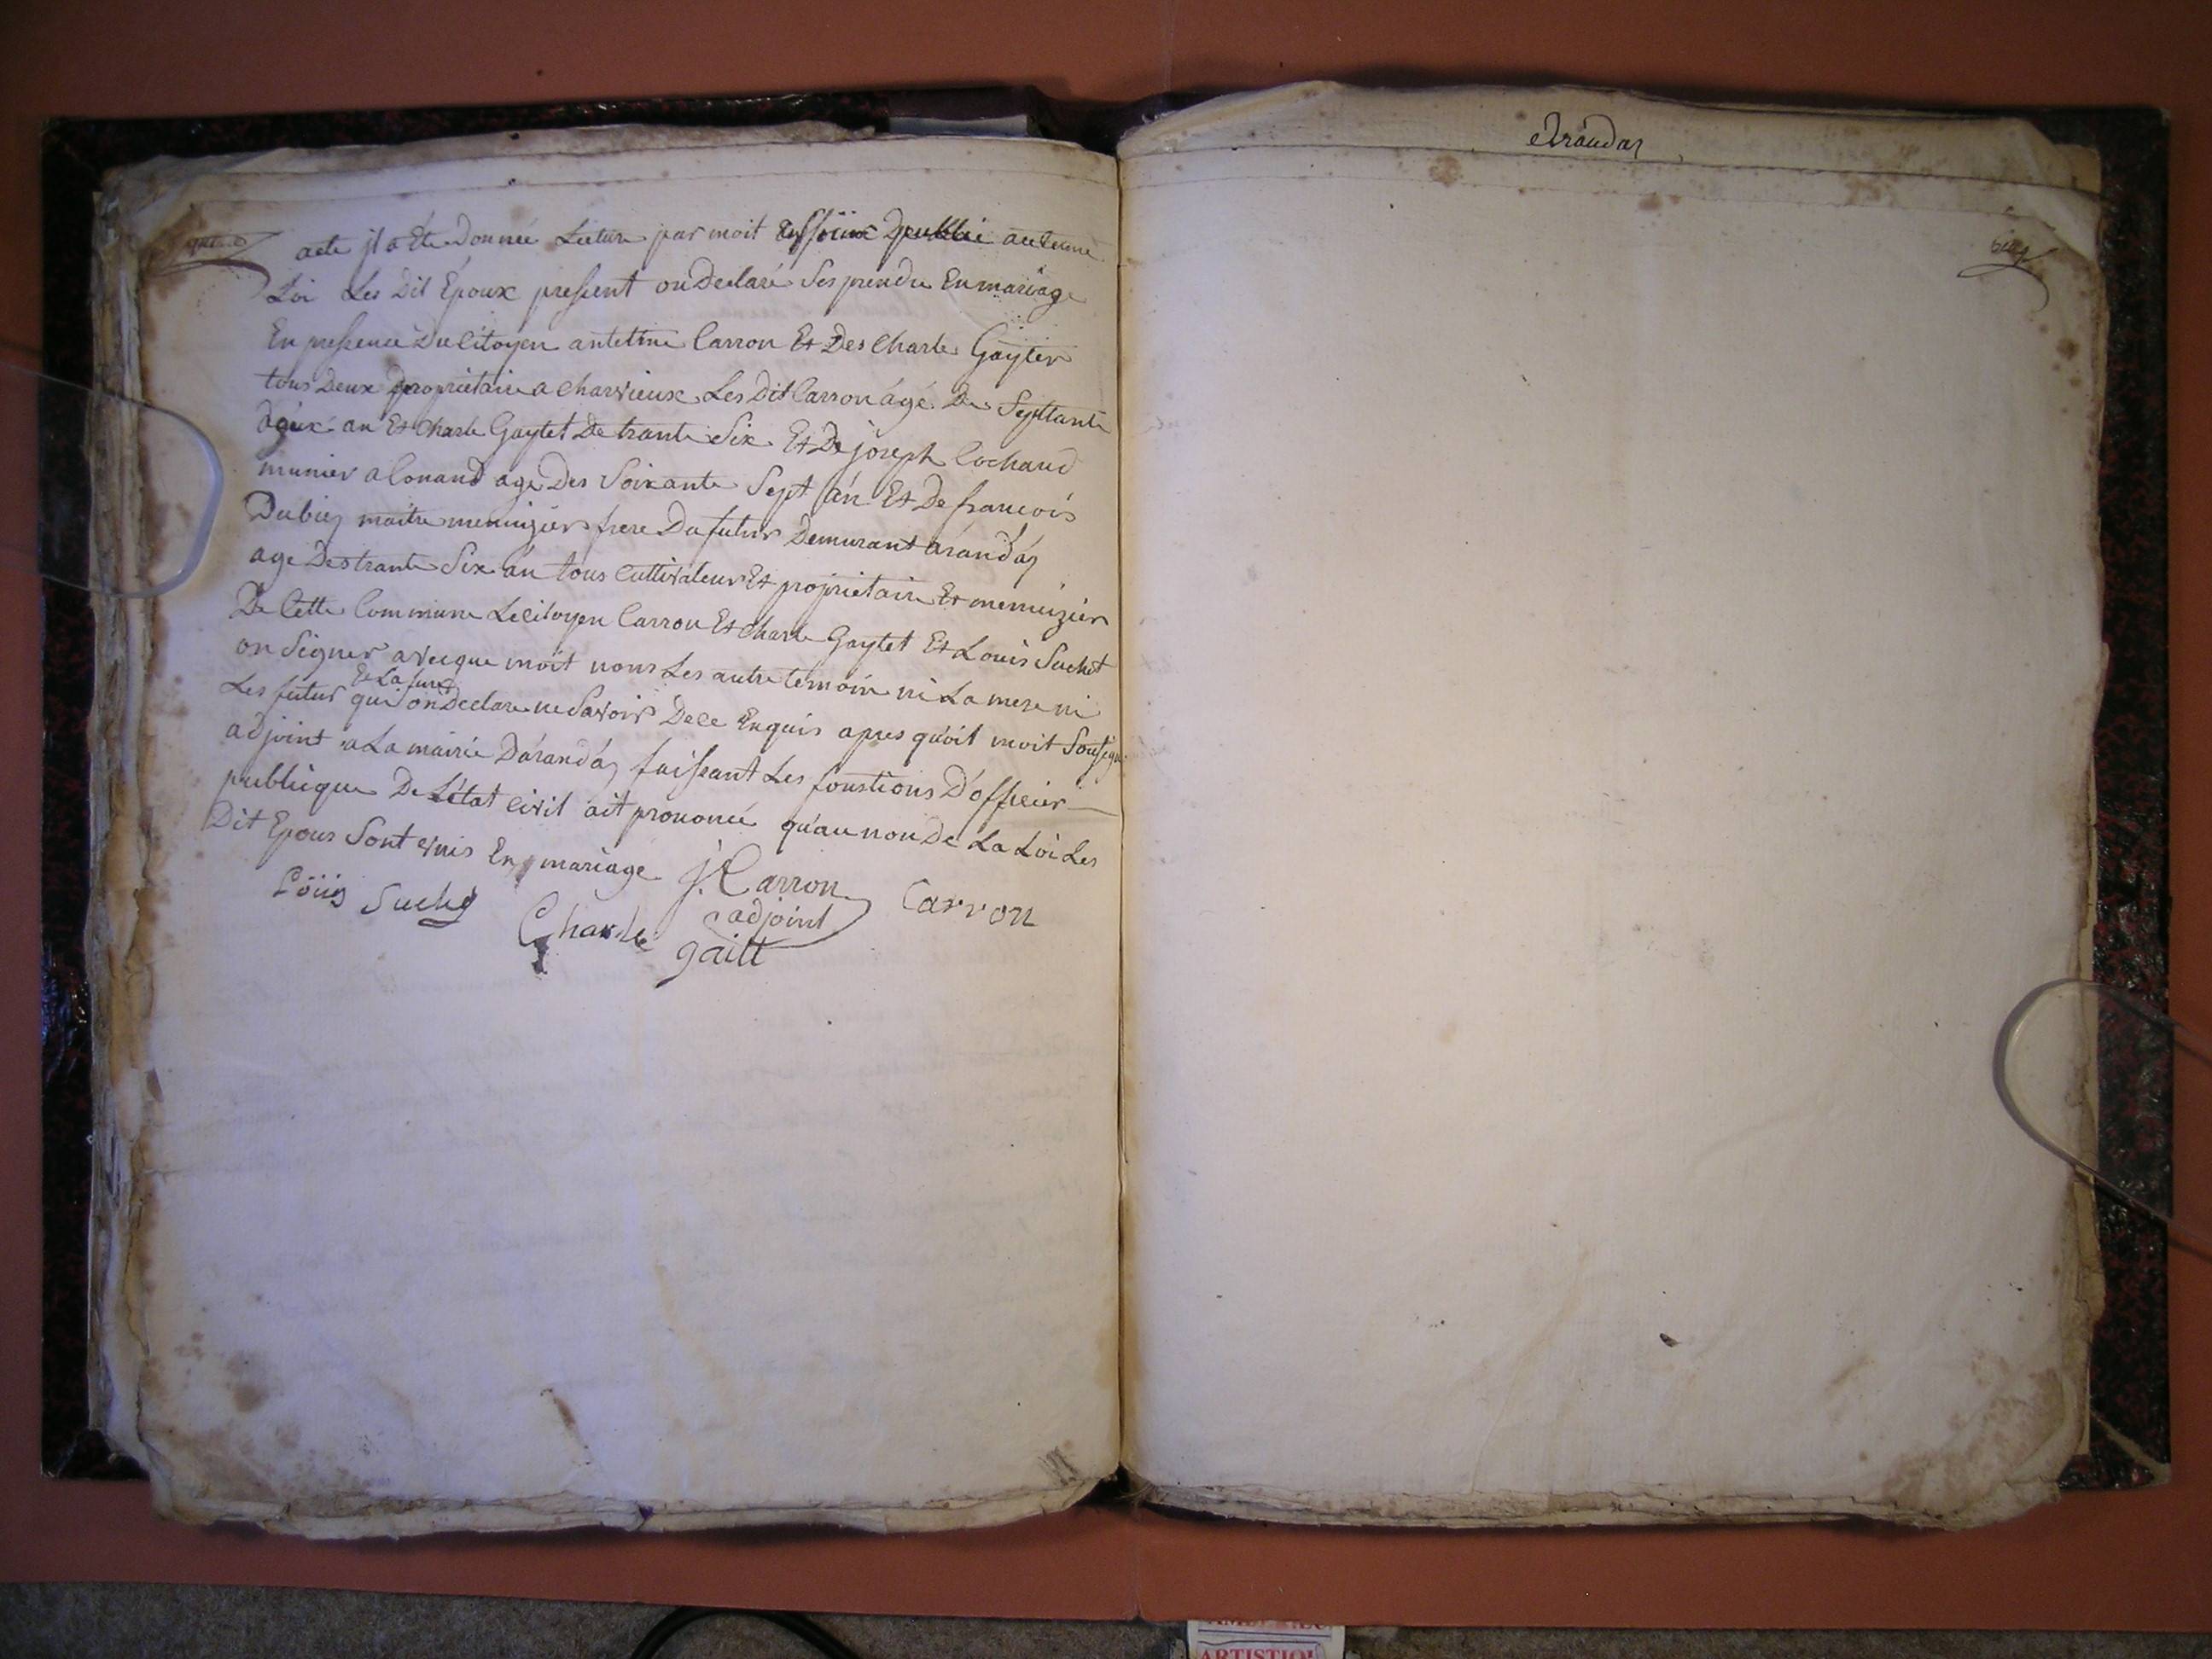 acte jl a Été Donnée Lecture par moit officier publie au terme
Loi Les Dit Époux pressent on Declaré Ses prendre En mariage
En pressence Du Citoyen antelme Carron Et Des Charle Gayter
tous Deux propriétaire a Charvieux Les Dit Carron ágé De Septtante
deux an Et Charle Gaytet De trante Six Et De joseph Cochaud
munier a Conand age Des Soixante Sept án Et De francois
Dubiez maitre menuizier frere Du futur Demurant árandáz
age Des trante Six án tous Cultivateur Et propriétaire Et menuizier
De Cette Commune Le Citoyen Carron Et Charle Gaytet Et Louis Suchet
on Signer avecque moit nons Les autre temoin ni La mere ni
Et La futur
Les futur qui on Declare ne Savoir De ce Enquis apres quoit moit Sousign
adjoint a La mairie Dárandáz faissant Les fonstions D'officier
publicque De Létat Civil ait prononcé qu'au non De La Loi Les
Dit Epous Sont Unis En mariage J. Carron
adjoint
Carron
Löuis Suchet
Charle gailt
Arandas